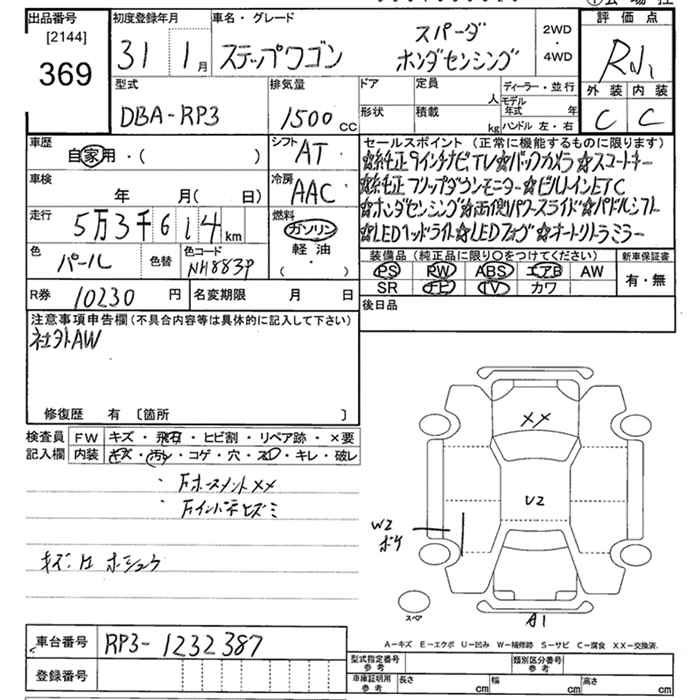 出品番号 初度登録年月 車名・グレード 評価点
[2144] 369 31 1月 ステップワゴン スパーダ ホンダセンシング 2WD・4WD
型式 排気量 ドア 定員 人 ディーラー・並行 外装 内装
DBA-RP3 1500 CC 形状 積載 kg モデル年式 年 ハンドル 左・右 C C
車歴 自家用・( ) シフト AT セールスポイント (正常に機能するものに限ります)
☆純正9インチナビTV☆バックカメラ☆スマートキー
車検 年 月( 日) 冷房 AAC ☆純正フリップダウンモニター☆ビルトインETC
走行 5万3千614km 燃料 ガソリン 軽油 ☆ホンダセンシング☆両側パワースライド☆パドルシフト
☆LEDヘッドライト☆LEDフォグ☆オートリトラミラー
色 パール 色替 色コード NH883P 装備品(純正品に限り○をつけてください) 新車保証書
PS PW ABS エアB AW 有・無
SR ナビ TV カワ
R券 10230円 名変期限 月 日 後日品
注意事項申告欄(不具合内容等は具体的に記入して下さい)
社外AW
修復歴 有 [箇所 ]
検査員 FW キズ・飛石・ヒビ割・リペア跡・×要
記入欄 内装 キズ・汚レ・コゲ・穴・スレ・キレ・破レ
・Fホースメントxx
・Fインパネヒズミ
キズ・凹 ホシュウ
XX
U2
W2
ボケ
スペア
A1
A-キズ E-エクボ U-凹み W-補修跡 S-サビ C-腐食 XX-交換済
車台番号 RP3-1232387 型式指定番号 参考 類別区分番号 参考
登録番号 車庫証明用 参考 長さ cm 幅 cm 高さ cm